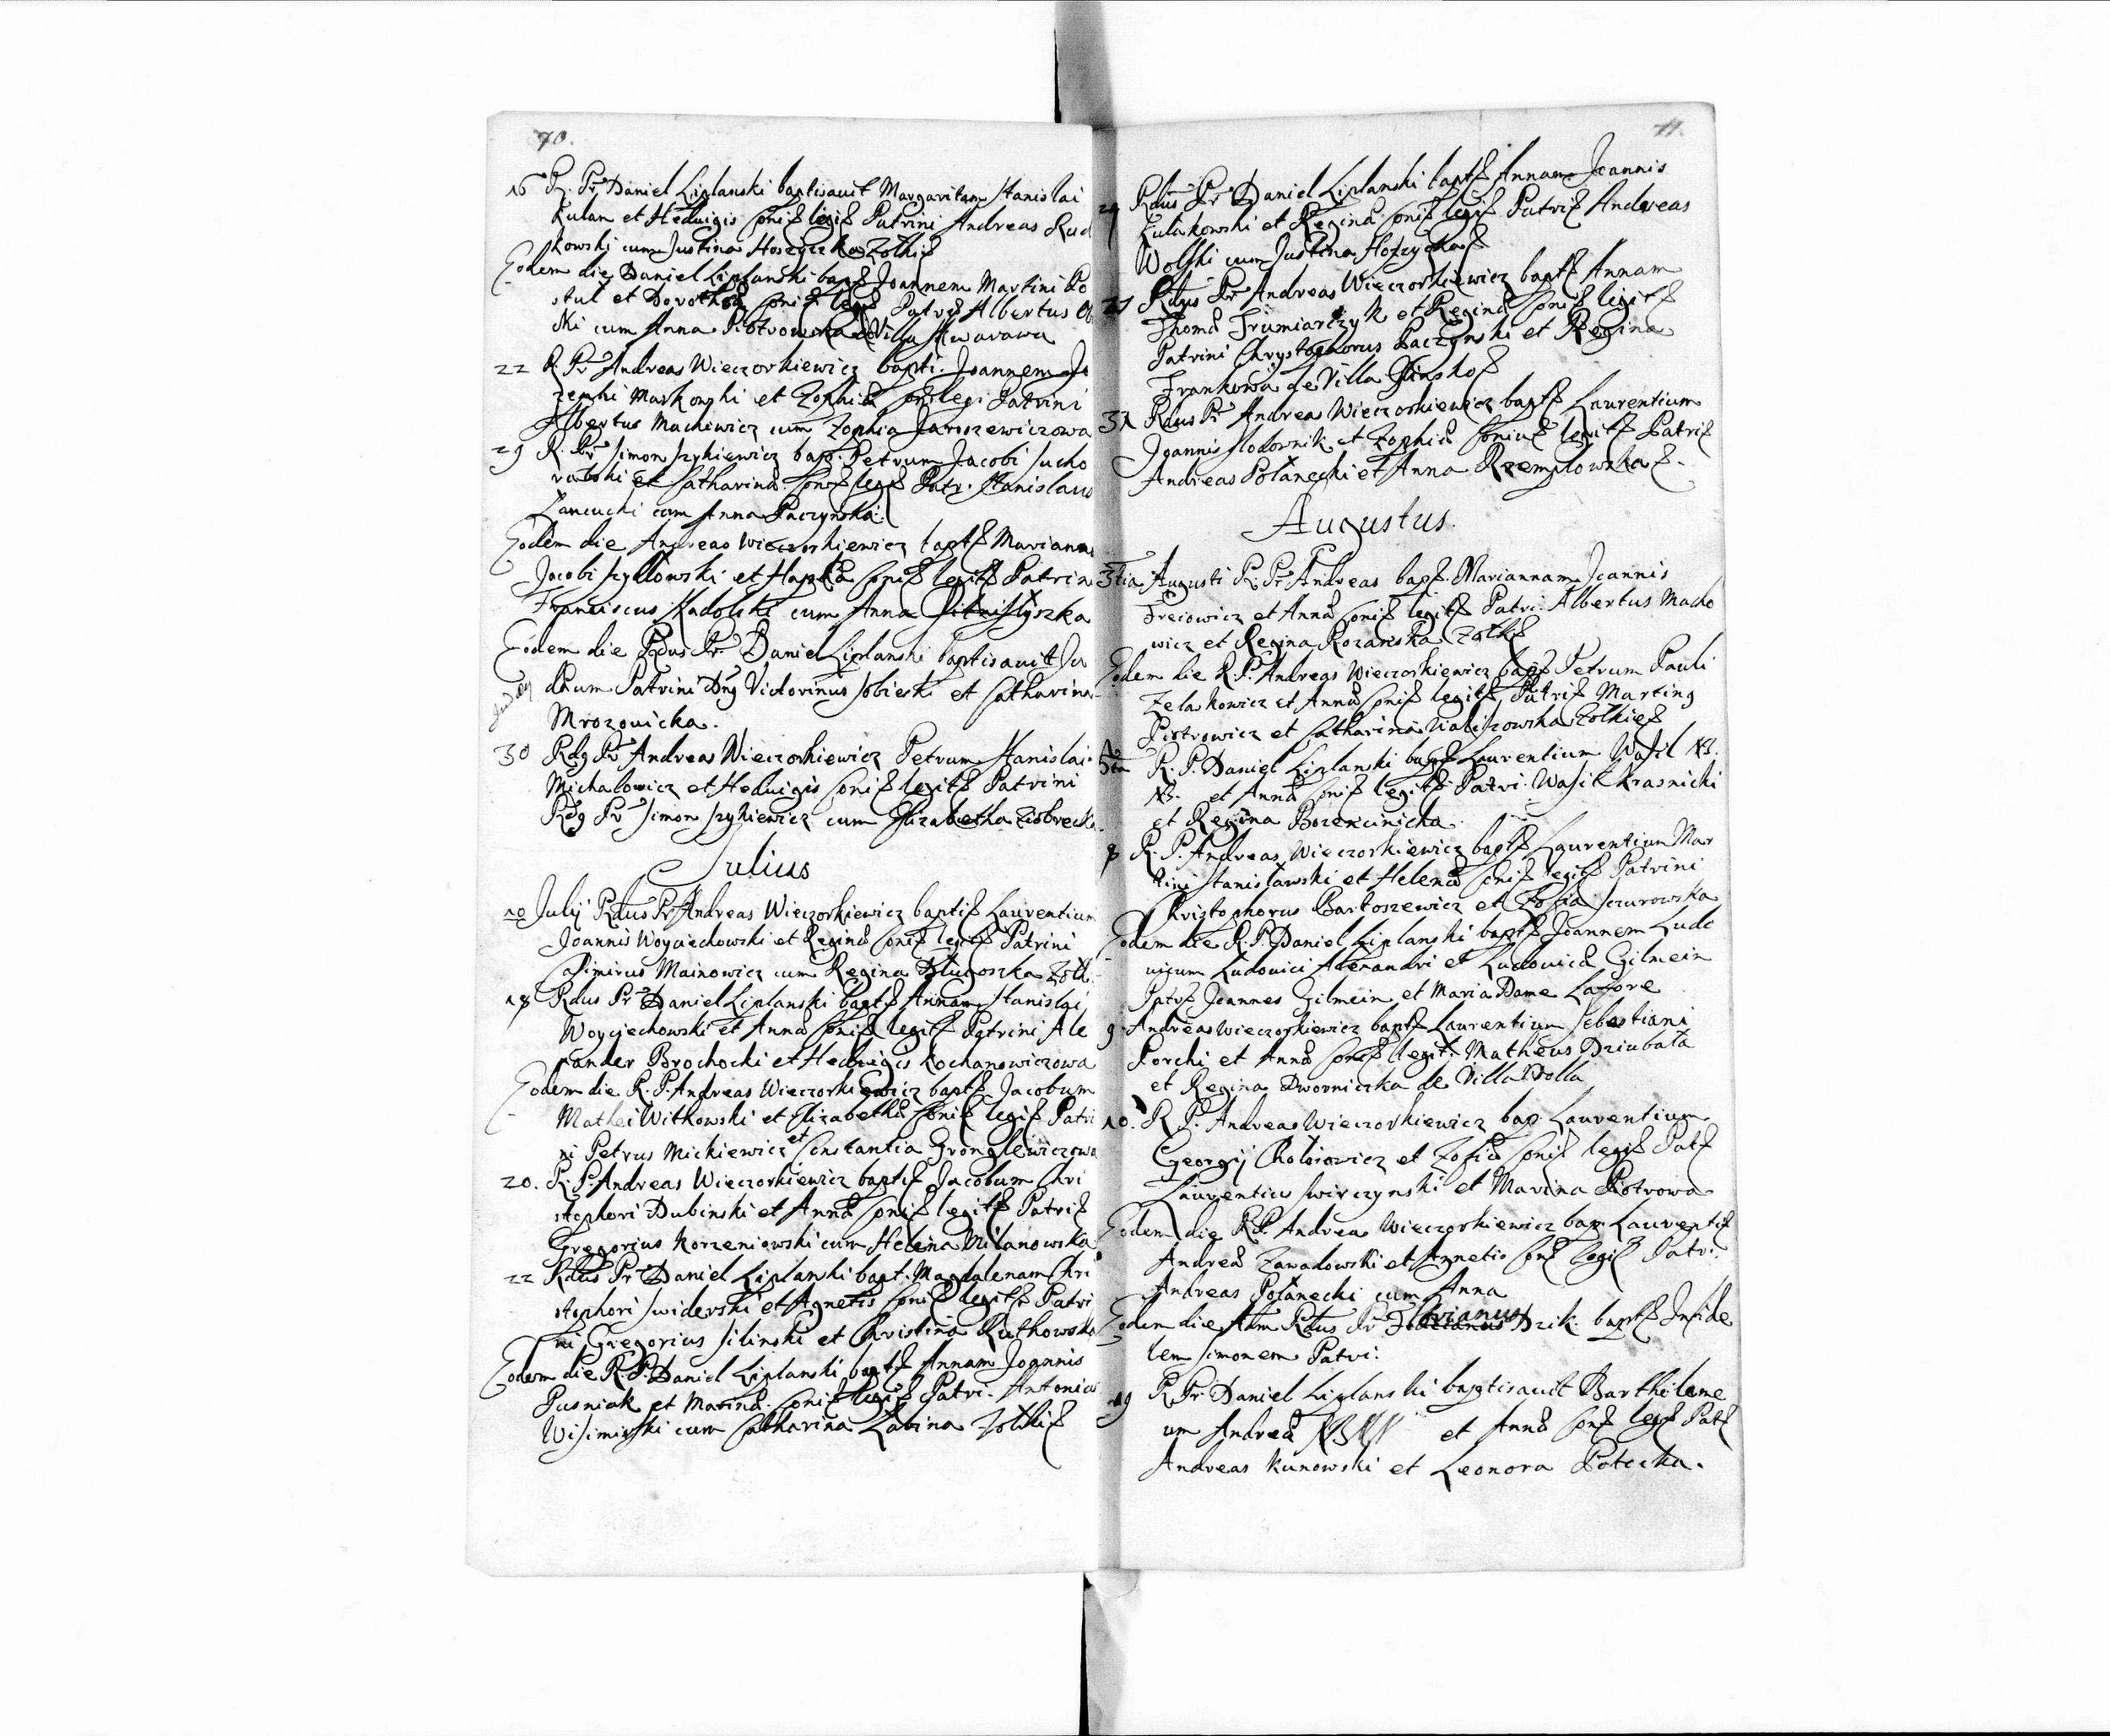 70.
16 R. Pr Daniel Liplanski baptisavit Margaritam Stanislai
Kulam et Heduigis Conif legif Patrini Andreas Rud
kowski cum Justina Hoszyczka Zolkif
Eodem die Daniel Liplanski bapf Joannem Martini Po
stul et Dorothea Conif legif Patrif Albertus
ski cum Anna Piotrowska Villa
22 R. Pr Andreas Wieczorkiewicz bapti. Joannem Jo
zephi Markowski et Zophia Conif legi. Patrini
Albertus Machiwicz cum Zophia Jaroszewiczowa
29 R. Pr Simon Szykiewicz bap. Petrum Jacobi Sucho
rabski et Catharina Conif legif Patr. Stanislaus
Lancucki cum Anna Paczynska
Eodem die Andreas Wieczorkiewicz baptf Mariannam
Jacobi Szydlowski et Hapka Conif legitf Patrin
Franciscus Kadolski cum Anna
Eodem die Rdus Pr Daniel Liplanski baptisavit Ju
daum Patrini Dng Victorinus Sobieski et Catharina
Mrozowicka.
30 Rdg Pr Andreas Wieczorkiewicz Petrum Stanislai
Michalowicz et Heduigis Conif legitf Patrini
Rdg Pr Simon Szykiewicz cum Elizabetha Ziobrecka
Julius
10 Julij Rdus Pr Andreas Wieczorkiewicz baptif Laurentium
Joannis Woyciechowski et Regina Conif legif Patrini
Casimirus Mainowicz cum Regina Dlugoszka Zolk.
18 Rdus Pr Daniel Liplanski baptf Annam Stanislai
Woyciechowski et Anna Conif legitf Patrini Ale
xander Brochocki et Heduigis Kochanowiczowa
Eodem die R. P. Andreas Wieczorkiewicz baptf Jacobum
Mathei Witkowski et Elizabetha Conif legif Patri
ni Petrus Mickiewicz et Constantia Gronglewiczowa
20. R. P. Andreas Wieczorkiewicz baptif Jacobum Chri
stophori Dubinski et Anna Conif legitf Patrif
Gregorius Korzeniowski cum Helena Milanowska
22 Rdus Pr Daniel Liplanski bapt. Magdalenam Chri
stophori Swiderski et Agnetis Conif legitf Patri
ni Gregorius Silinski et Christina Rutkowska
Eodem die R. P. Daniel Liplanski baptf Annam Joannis
Pusniak et Marina Conif legif Patri. Antonius
Wisiminski cum Catharina Labina Zolkif
71.
24 Rdus Pr Daniel Liplanski baptf Annam Joannis
Zulakowski et Regina Conif legif Patrif Andreas
Wolski cum Justina Hoszyckaf
27 Rdus Pr Andreas Wieczorkiewicz baptf Annam
Thoma Frumiarczyk et Regina Conif legitf
Patrini Chrystophorus Paczynski et Regina
Frankowa de Villa Glinskof
31 Rdus Pr Andreas Wieczorkiewicz baptf Laurentium
Joannis Slodownik et Zophia Coniuf legitf Patrif
Andreas Polanecki et Anna Rzemplowskaf.
Augustus.
3tia Augusti R. Pr Andreas bapf. Mariannam Joannis
Freiowicz et Anna Conif legitf Patri. Albertus Macho
wicz et Regina Rozanska Zolkf
Eodem die R. P. Andreas Wieczorkiewicz bapf Petrum Pauli
Zelakowicz et Anna Conif legitf Patrif Marting
Piotrowicz et Catharina Zolkief
5ta R. P. Daniel Liplanski bapf Laurentium Wasil N3.
N3. et Anna Conif legitf Patri. Wasil Krasnicki
et Regina Bozencinicka.
8 R. P. Andreas Wieczorkiewicz baptf Laurentium Mar
tini Stanislawski et Helena Conif legitf Patrini
Christophorus Bartoszewicz et Zofia Sczurowska
Eodem die R. P. Daniel Liplanski baptf Joannem Ludo
vicum Ludovici Alexandri et Ludovica Gilmein
Patrf Joannes Gilmein et Maria Dame Lafore
9 Andreas Wieczorkiewicz baptf Laurentium Sebastiani
Porchi et Anna Conif legit. Matheus Dziubala
et Regina Dworniczka de Villa Wolla
10. R. P. Andreas Wieczorkiewicz bap. Laurentium
Georgij Choloiowicz et Zofia Conif legif Patf
Laurentius Swirczynski et Marina Piotrowa
Eodem die R P. Andreas Wieczorkiewicz bap. Laurentif
Andrea Zawadowski et Agnetis Conf legif Patri.
Andreas Polanecki cum Anna
Eodem die Adm Rdus Pr Dzik baptf Infide
lem Simonem Patri.
19 R. Pr Daniel Liplanski baptisavit Bartholome
um Andrea et Anna Conf legf Patf
Andreas Kunowski et Leonora Potocka.